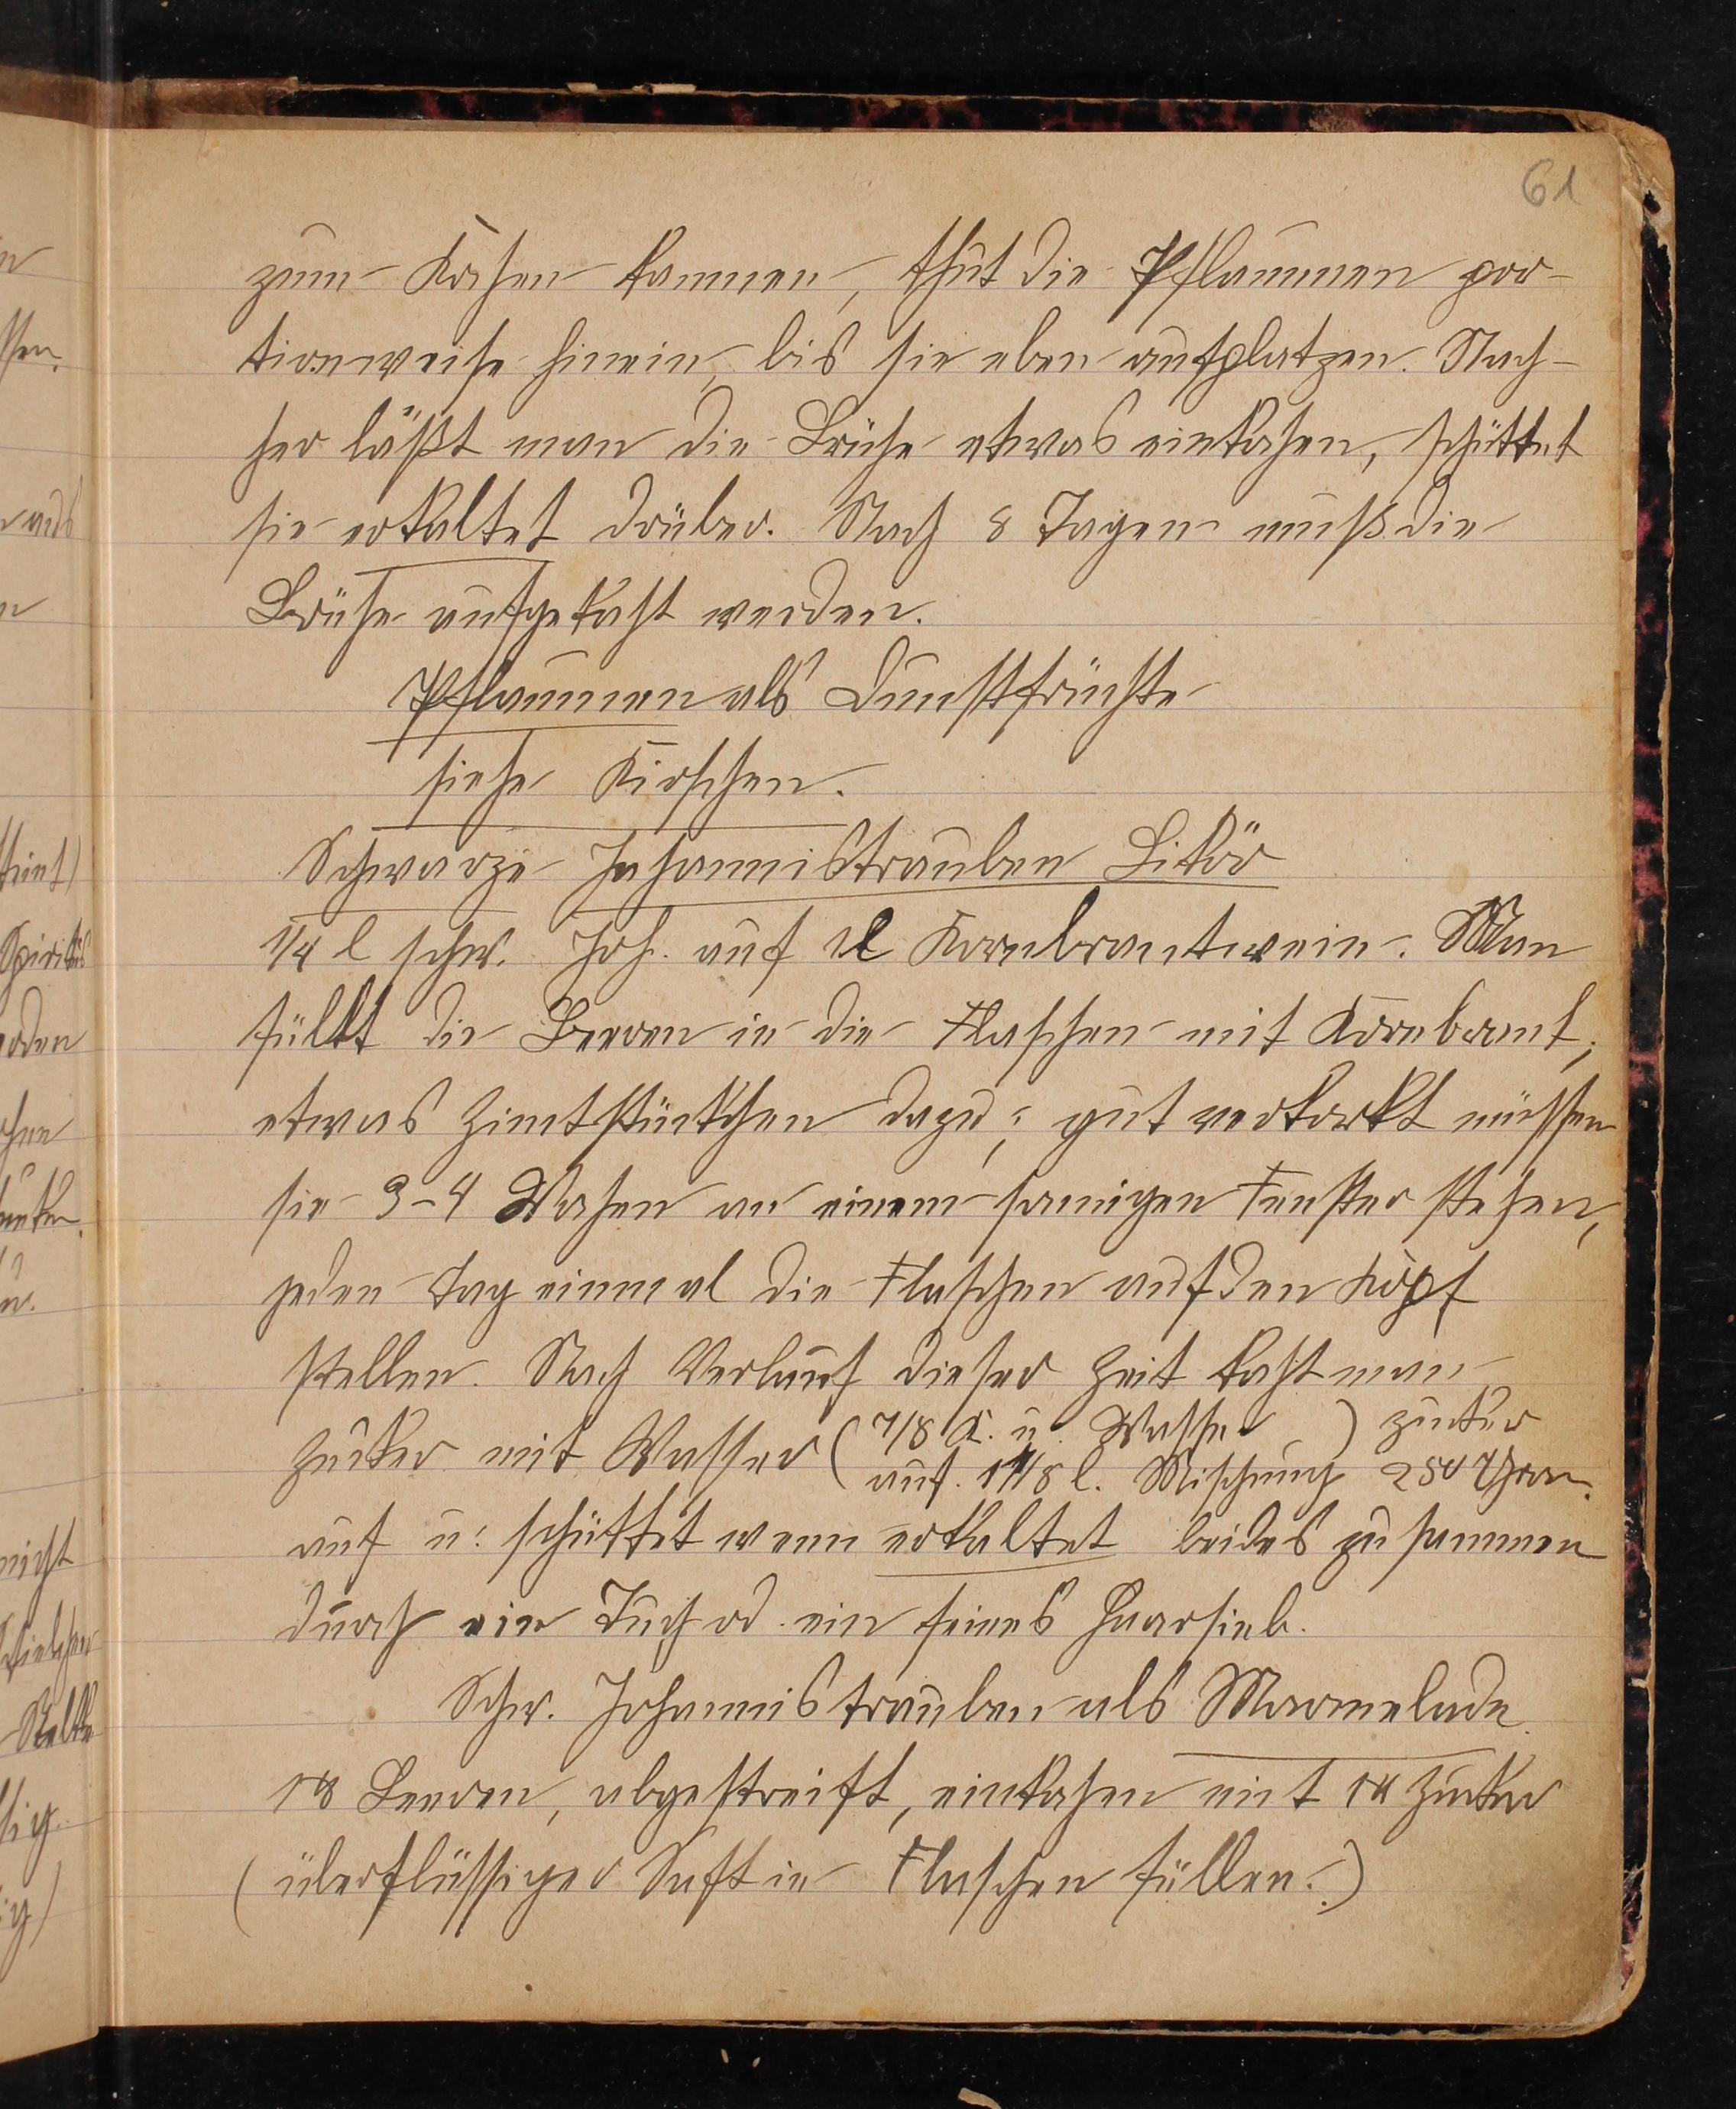 61
zum Kochen kommen, thut die Pflaumen por-
tionweise hinein, bis sie eben aufplatzen. Nach-
her läßt man die Brühe etwas einkochen, schüttet
sie erkaltet drüber. Nach 8 Tagen muß die
Brühe aufgekocht werden.
Pflaumen als Dunstfrüchte
siehe Kirschen.
Schwarze Johannistrauben Likör
1/4 l schw. Joh. auf 1l Kornbrantwein. Man
füllt die Beeren in die Flaschen mit Kornbrant,
etwas Zimtstückchen dazu; gut verkorkt müssen
sie 3-4 Wochen an einem sonnigen Fenster stehen,
jeden Tag einmal die Flaschen auf den Kopf
stellen. Nach Verlauf dieser Zeit kocht man
Zucker mit Wasser ( 7/8 K. u. Wasser ) Zucker
auf 1 1/8 l. Mischung 250 Gram.
auf u. schüttet wenn erkaltet beides zusammen
durch ein Tuch od. ein feines Haarsieb.
Schw. Johannistrauben als Marmelade.
1 ℔ Beeren, abgestreift, einkochen mit 1 ℔ Zucker
(überflüssiger Saft in Flaschen füllen.)